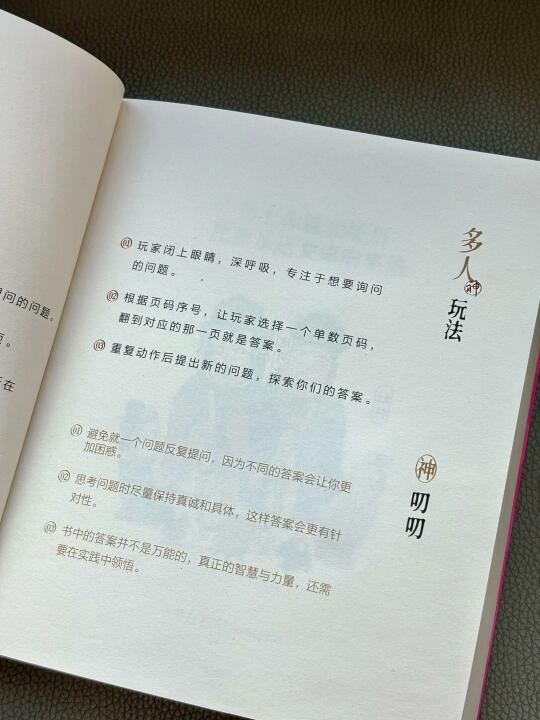 问的问题。
。
在
多人神玩法
01 玩家闭上眼睛，深呼吸，专注于想要询问
的问题。
02 根据页码序号，让玩家选择一个单数页码，
翻到对应的那一页就是答案。
03 重复动作后提出新的问题，探索你们的答案。
神叨叨
01 避免就一个问题反复提问，因为不同的答案会让你更
加困惑。
02 思考问题时尽量保持真诚和具体，这样答案会更有针
对性。
03 书中的答案并不是万能的，真正的智慧与力量，还需
要在实践中领悟。